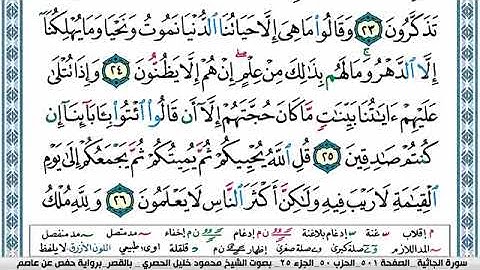 تَذَكَّرُونَ ٢٣ وَقَالُوا۟ مَا هِىَ إِلَّا حَيَاتُنَا ٱلدُّنْيَا نَمُوتُ وَنَحْيَا وَمَا يُهْلِكُنَآ
إِلَّا ٱلدَّهْرُ ۚ وَمَا لَهُم بِذَٰلِكَ مِنْ عِلْمٍ ۖ إِنْ هُمْ إِلَّا يَظُنُّونَ ٢٤ وَإِذَا تُتْلَىٰ
عَلَيْهِمْ ءَايَـٰتُنَا بَيِّنَـٰتٍ مَّا كَانَ حُجَّتَهُمْ إِلَّآ أَن قَالُوا۟ ٱئْتُوا۟ بِـَٔابَآئِنَآ إِن
كُنتُمْ صَـٰدِقِينَ ٢٥ قُلِ ٱللَّهُ يُحْيِيكُمْ ثُمَّ يُمِيتُكُمْ ثُمَّ يَجْمَعُكُمْ إِلَىٰ يَوْمِ
ٱلْقِيَـٰمَةِ لَا رَيْبَ فِيهِ وَلَـٰكِنَّ أَكْثَرَ ٱلنَّاسِ لَا يَعْلَمُونَ ٢٦ وَلِلَّهِ مُلْكُ
م إقلاب غنة إدغام بلاغنة ن م إدغام ن م إخفاء مد متصل مد منفصل
المد اللازم صلة كبرى صلة صغرى إظهار ن م قلقلة اوى طبيعي اللون الأزرق لا يلفظ
سورة الجاثية_ الصفحة ٥٠١_ الحزب ٥٠_ الجزء ٢٥_ بصوت الشيخ محمود خليل الحصري _ بالقصر_ برواية حفص عن عاصم